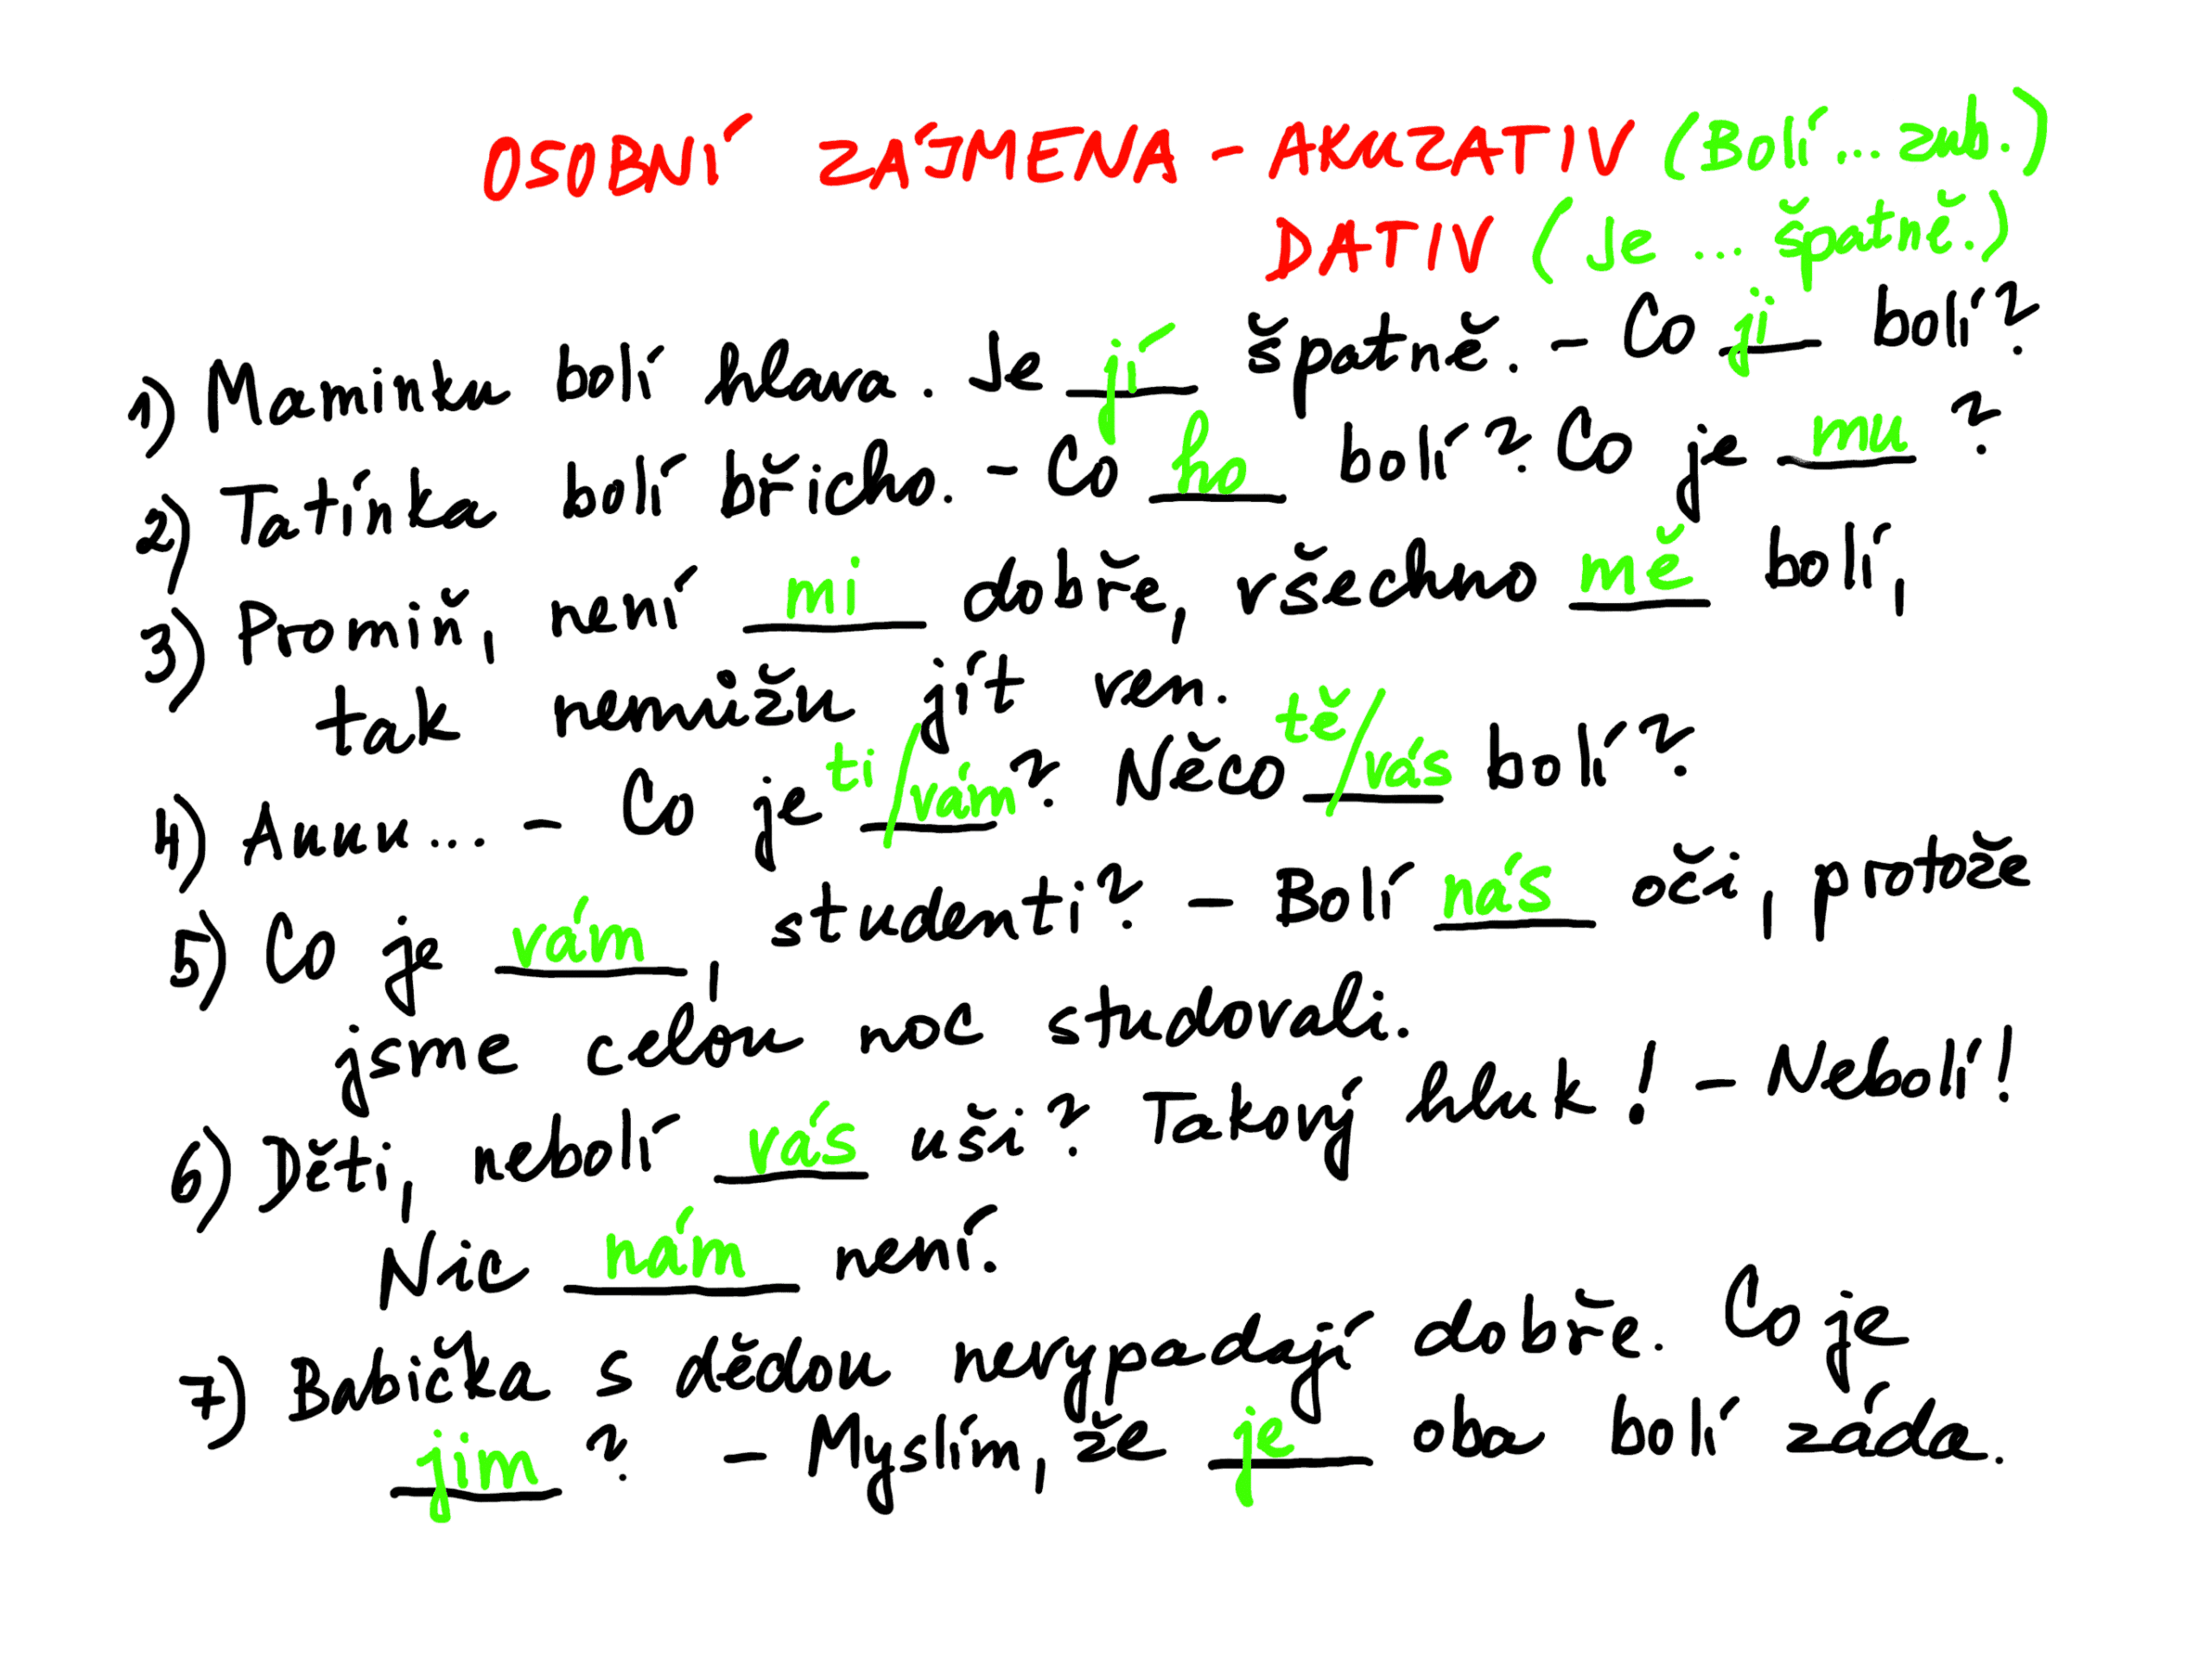 OSOBNÍ ZÁJMENA - AKUZATIV (Bolí ... zub.)
DATIV (Je ... špatně.)
1) Maminku bolí hlava. Je jí špatně. - Co ji bolí?
2) Tatínka bolí břicho. - Co ho bolí? Co je mu ?
3) Promiň, není mi dobře, všechno mě bolí,
tak nemůžu jít ven.
4) Auuu... - Co je ti/vám? Něco tě/vás bolí?
5) Co je vám, studenti? - Bolí nás oči, protože
jsme celou noc studovali.
6) Děti, nebolí vás uši? Takový hluk! - Nebolí!
Nic nám není.
7) Babička s dědou nevypadají dobře. Co je
jim ? - Myslím, že je oba bolí záda.